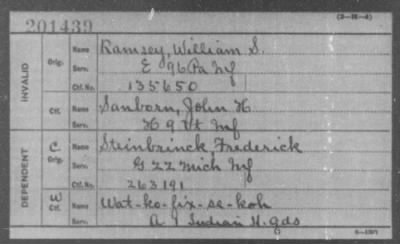 (3-26-8)
201439
INVALID
Orig.
Name Ramsey, William S.
Serv. E 96 Pa Inf
Ctf. No. 135650
Ctf.
Name Sanborn, John H
Serv. H 9 Vt Inf
DEPENDENT
C
Orig.
Name Steinbrinck Frederick
Serv. G 22 Mich Inf
Ctf. No. 263191
W
Ctf.
Name Wat-ko-fix-se-koh
Serv. A 1 Indian H. Gds